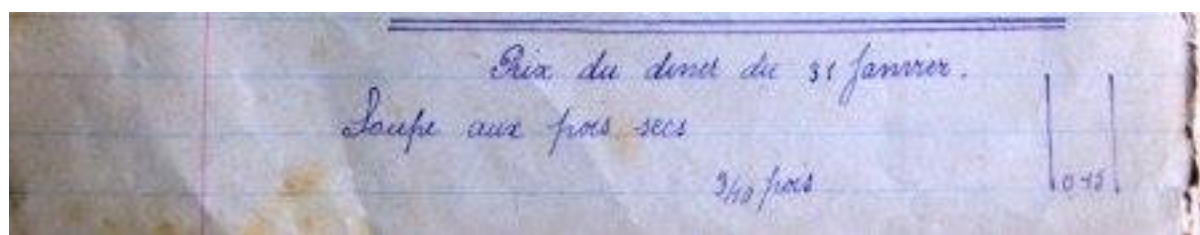 Prix du diner du 31 Janvier.
Soupe aux pois secs
3/40 pois 0 15